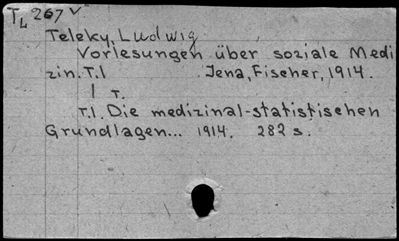 TL 267 V
Teleky, Ludwig
Vorlesungen über soziale Medi
zin. T.1 Jena, Fischer, 1914.
1 T.
T.1. Die medizinal-statistischen
Grundlagen... 1914. 282 s.